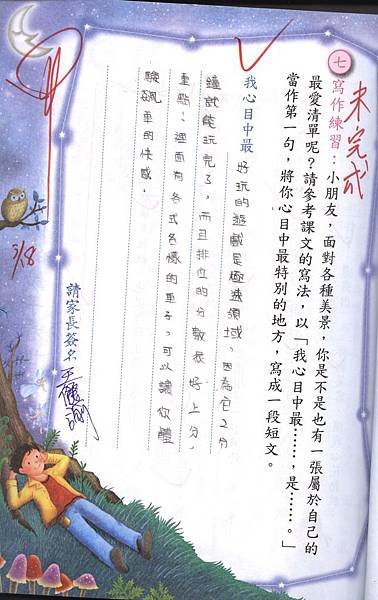 未完成
七 寫作練習：小朋友，面對各種美景，你是不是也有一張屬於自己的
最愛清單呢？請參考課文的寫法，以「我心目中最……，是……。」
當作第一句，將你心目中最特別的地方，寫成一段短文。
我心目中最好玩的遊戲是極速領域，因為它2分
鐘就能玩完了，而且排位的分數很好上分，
重點：裡面有各式各樣的車子，可以讓你體
驗飆車的快感。
請家長簽名
3/18